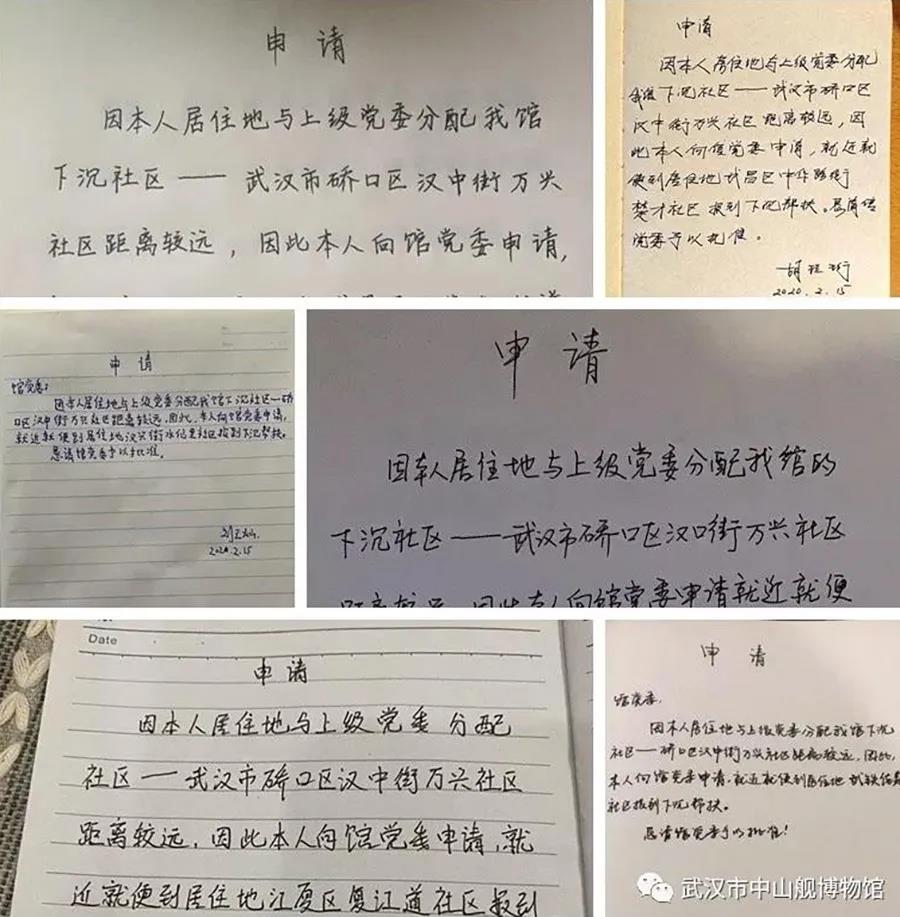 申请
因本人居住地与上级党委分配我馆
下沉社区——武汉市硚口区汉中街万兴
社区距离较远，因此本人向馆党委申请，
申请
因本人居住地与上级党委分配
我馆下沉社区——武汉市硚口区
汉中街万兴社区距离较远，因
此本人向馆党委申请，就近就
便到居住地武昌区中华路街
楚才社区报到下沉帮扶。恳请馆
党委予以批准。
2020.2.15
申请
馆党委：
因本人居住地与上级党委分配我馆下沉社区—硚
口区汉中街万兴社区距离较远，因此，本人向馆党委申请，
就近就便到居住地汉兴街社区报到下沉帮扶。
恳请馆党委予以批准。
2020.2.15
申请
因本人居住地与上级党委分配我馆的
下沉社区——武汉市硚口区汉口街万兴社区
距离较远，因此本人向馆党委申请就近就便
Date
申请
因本人居住地与上级党委分配
社区—武汉市硚口区汉中街万兴社区
距离较远，因此本人向馆党委申请，就
近就便到居住地江夏区复江道社区报到
申请
馆党委，
因本人居住地与上级党委分配我馆下沉
社区—硚口区汉中街万兴社区距离较远，因此，
本人向馆党委申请，就近就便到居住地
社区报到下沉帮扶。
恳请馆党委予以批准！
武汉市中山舰博物馆